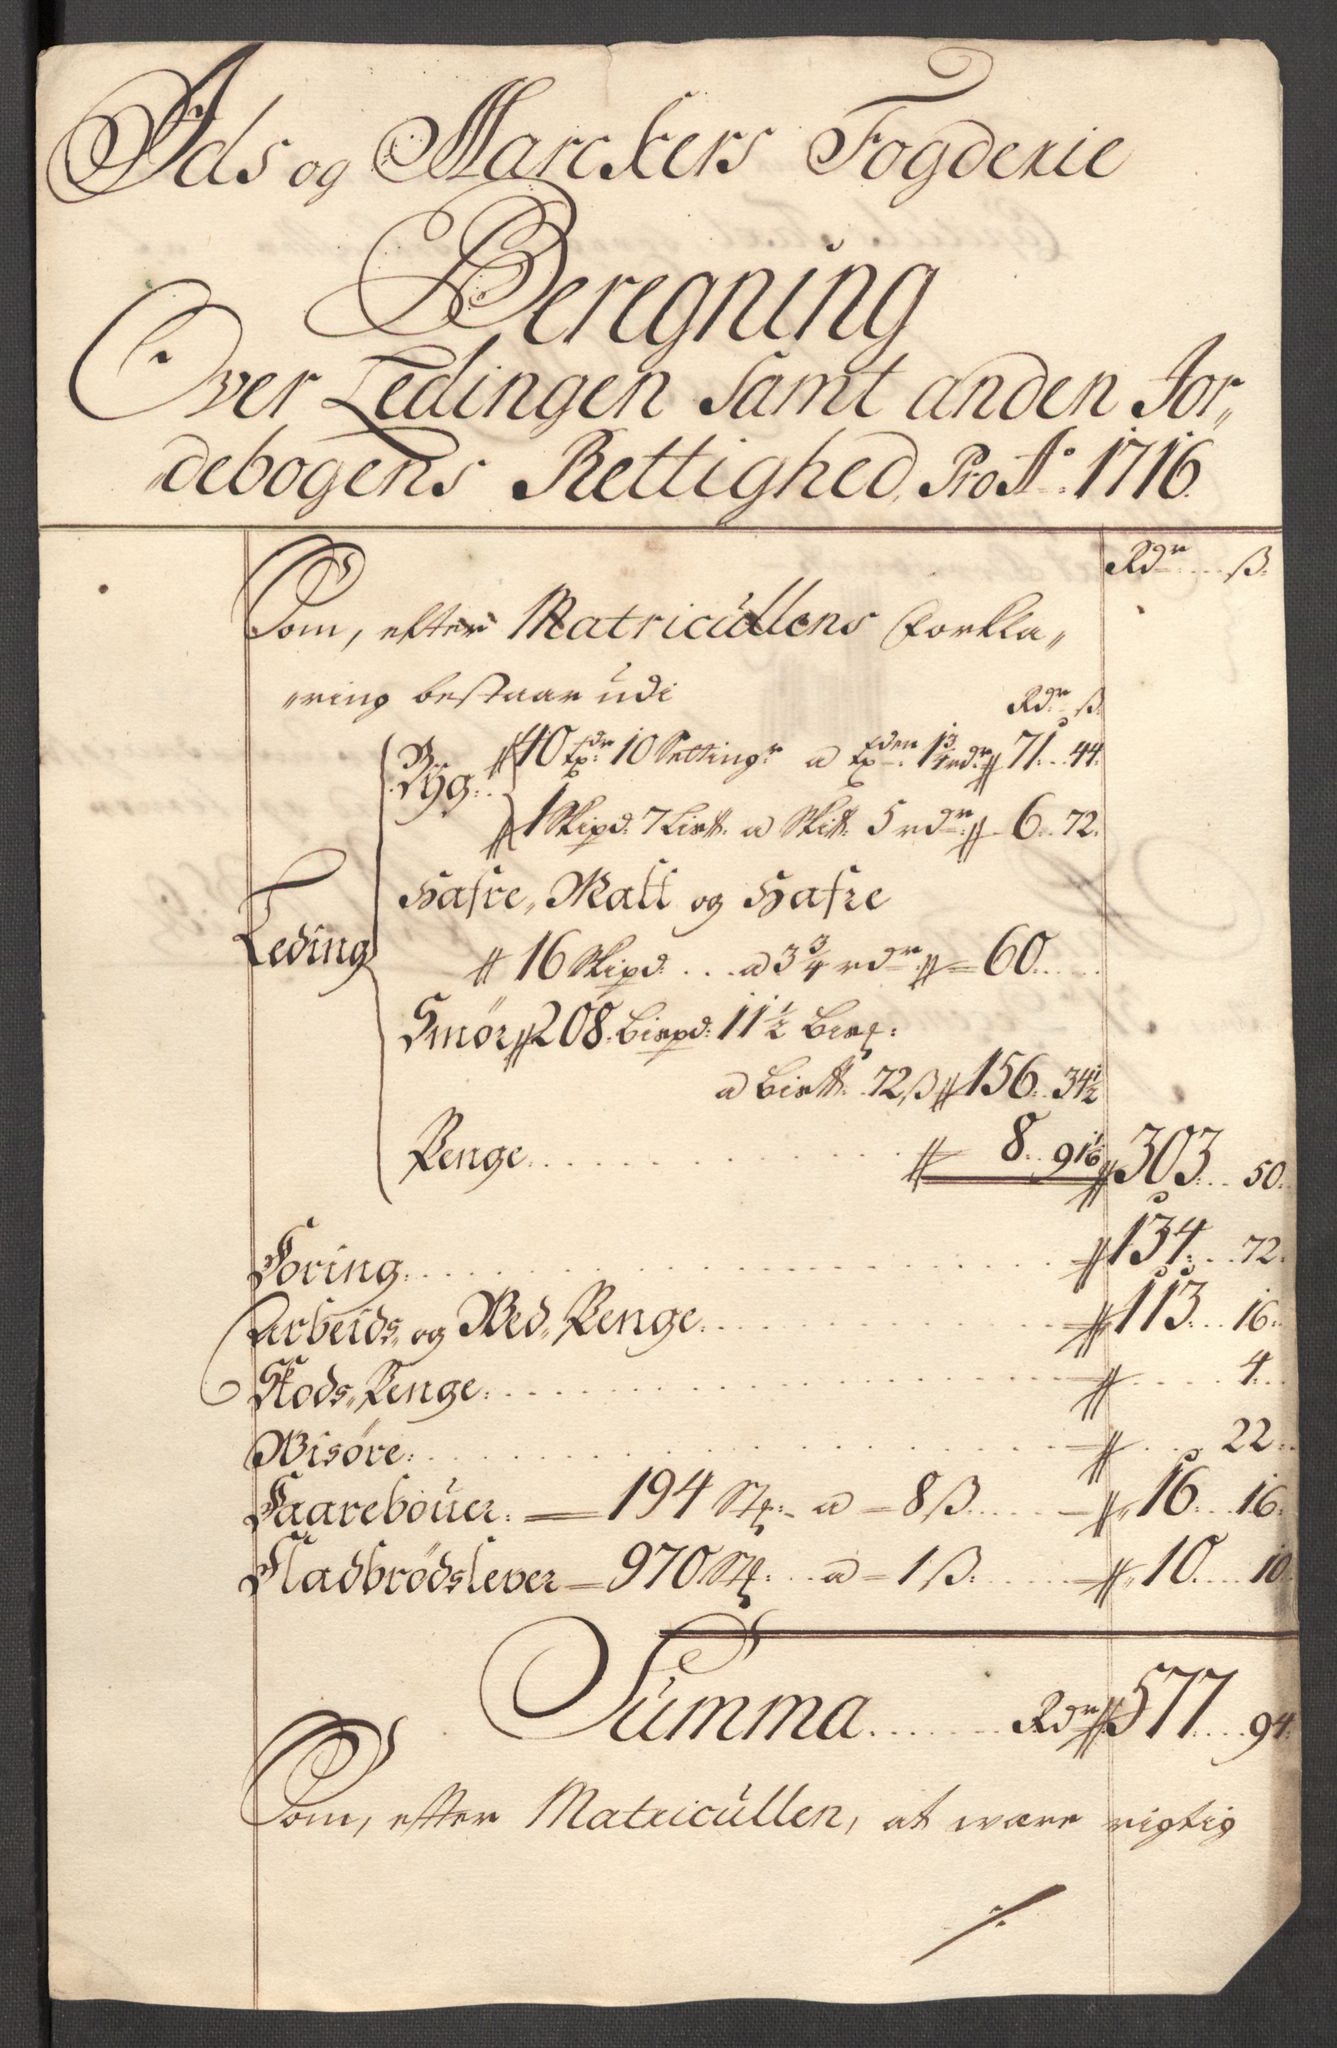 Ids og Marckers Fogderie
Beregning
Over Ledingen Samt anden Jor„
debogens Rettighed, Pro Ao: 1716.
Rdr ß:
Som, efter Matricullens Forkla„
„ring bestaar udi
Rdr ß:
Byg: 40 tdr: 10 Setting: a 1¾ rdr 71. 44.
1 Skipd: 7 Lis℔: a Ski℔: 5 rdr 6. 72.
Hafre„ Malt og Hafre
Leding 16 Skipd. a 3¾ rdr 60.
Smör 208. Bispd: 11½ Bes:
a Bis℔: 72 ß 156. 34½
Penge 8. 91½ 303. 50.
Foring 134. 72.
Arbeids„ og Wed„ Penge 113. 16.
Skods„ Penge: 4.
Wisöre: 22.
Faarebouer: 194 Stk: a 8 ß 16. 16.
Fladbrödslever 970 Stk: a 1 ß. 10. 10.
Summa Rdr 577. 94.
Som, efter Matricullen, at være rigtig